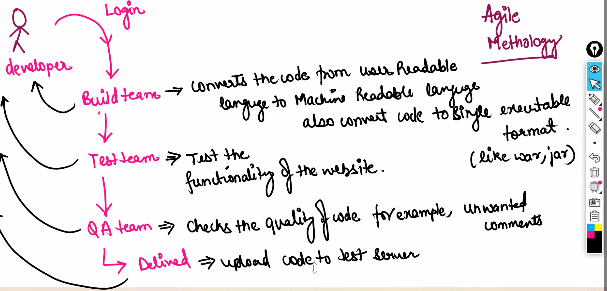 Login
Agile
Methology
developer
Build team → Converts the code from user Readable
languge to Machine Readable languge
also convert code to Single executable
format.
(like war, jar)
Test team ⇒ Test the
functionality of the website.
QA team ⇒ Checks the quality of code for example, unwanted
comments
Delived ⇒ upload code to test server